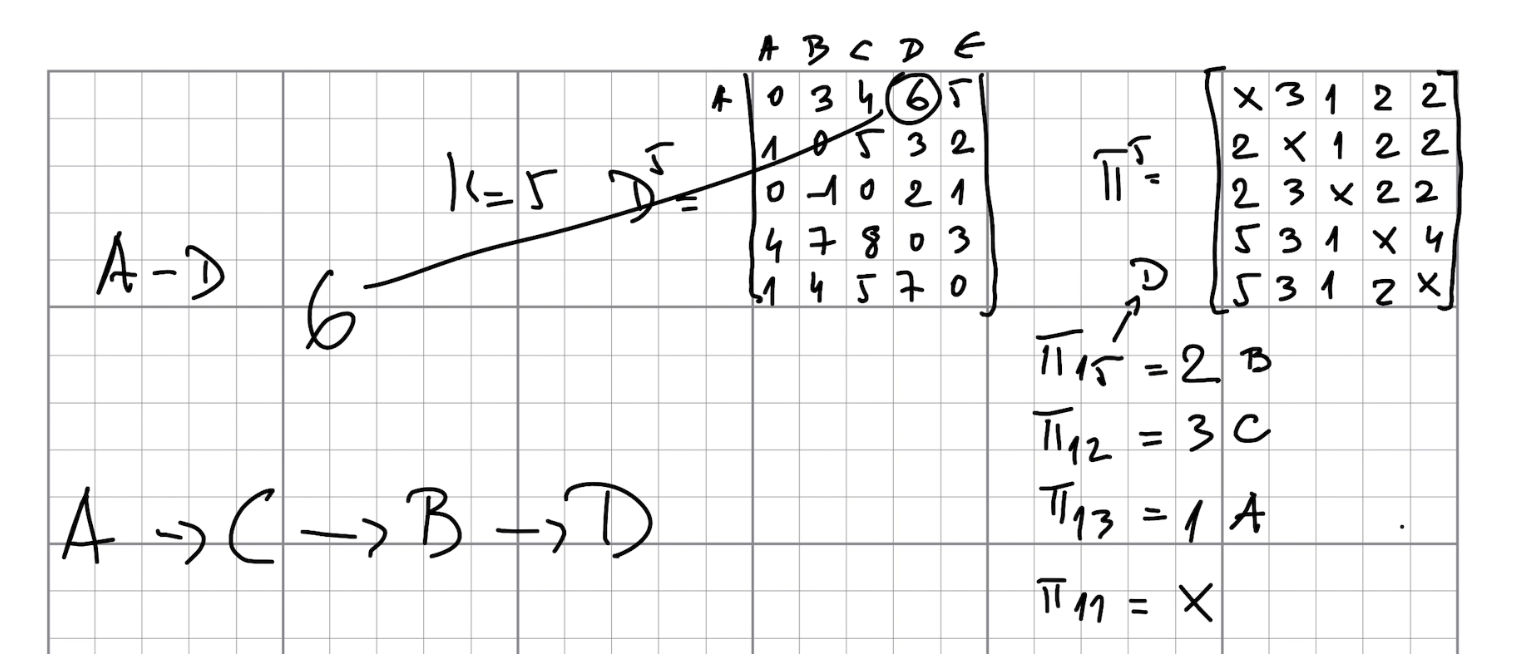 A B C D E
A 0 3 4 6 5
1 0 5 3 2
0 -1 0 2 1
4 7 8 0 3
1 4 5 7 0
K=5 D⁵=
Π⁵=
x 3 1 2 2
2 x 1 2 2
2 3 x 2 2
5 3 1 x 4
5 3 1 2 x
A-D 6
D
Π15 = 2 B
Π12 = 3 C
Π13 = 1 A
Π11 = X
A → C → B → D